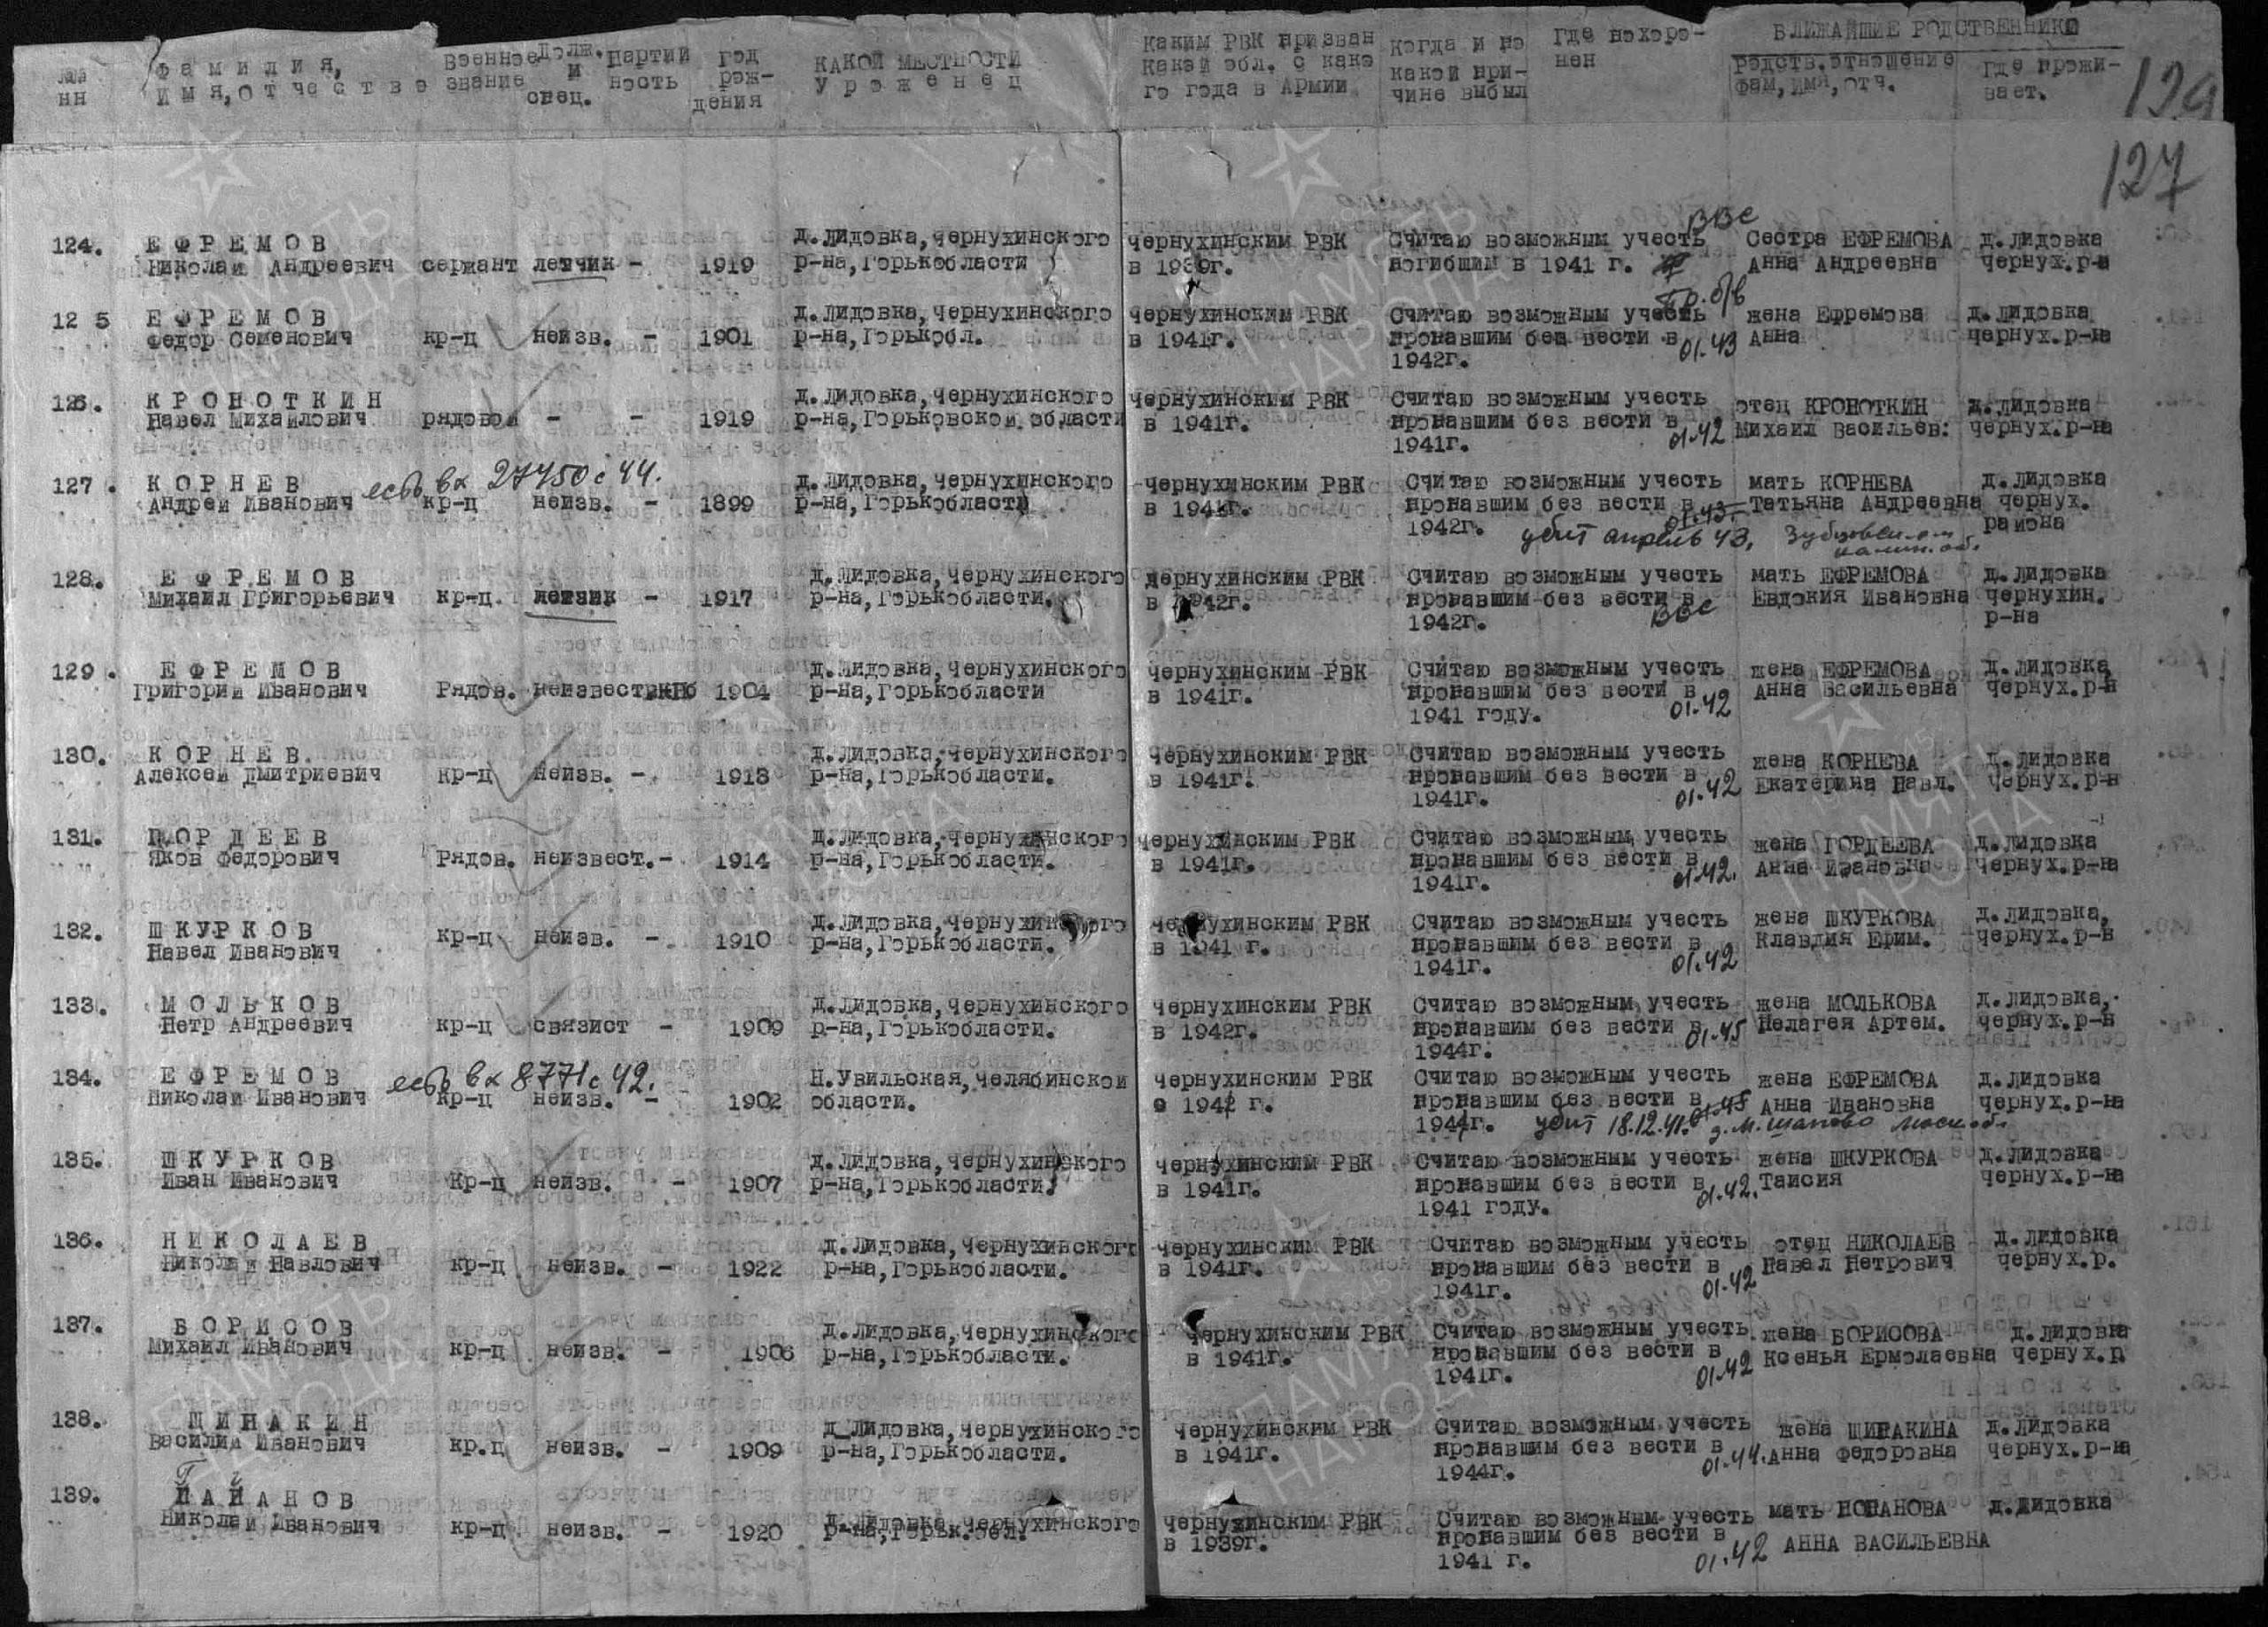 №№ нн
Фамилия, имя, отчество
Военное звание
Долж. и спец.
Партийность
Год рождения
КАКОЙ МЕСТНОСТИ уроженец
Каким РВК призван какой обл. с какого года в Армии
Когда и по какой причине выбыл
Где похоронен
БЛИЖАЙШИЕ РОДСТВЕННИКИ
родств. отношение фам, имя, отч.
Где проживает.
129
127
ВВС
124. ЕФРЕМОВ д.Лидовка,Чернухинского Чернухинским РВК Считаю возможным учесть Сестра ЕФРЕМОВА д.Лидовка
Николай Андреевич сержант летчик - 1919 р-на,Горьк.области в 1939г. погибшим в 1941 г. Анна Андреевна Чернух.р-н
Пр. б/в
125 ЕФРЕМОВ д.Лидовка,Чернухинского Чернухинским РВК Считаю возможным учесть жена Ефремова д.Лидовка
Федор Семенович кр-ц неизв. - 1901 р-на,Горьк.обл. в 1941г. пропавшим без вести в 01.43 Анна Чернух.р-на
1942г.
126. КРОПОТКИН д.Лидовка,Чернухинского Чернухинским РВК Считаю возможным учесть отец КРОПОТКИН д.Лидовка
Павел Михайлович рядовой - - 1919 р-на,Горьковской области в 1941г. пропавшим без вести в 01.42 Михаил Васильев: Чернух.р-на
1941г.
есть вх 27450с 44.
127. КОРНЕВ д.Лидовка,Чернухинского Чернухинским РВК Считаю возможным учесть мать КОРНЕВА д.Лидовка
Андрей Иванович кр-ц неизв. - 1899 р-на,Горьк.области в 1941г. пропавшим без вести в 01.43 Татьяна Андреевна Чернух.
1942г. убит апрель 43, района
128. ЕФРЕМОВ д.Лидовка,Чернухинского Чернухинским РВК Считаю возможным учесть мать ЕФРЕМОВА д.Лидовка
Михаил Григорьевич кр-ц летчик - 1917 р-на,Горьк.области. в 1942г. пропавшим без вести в Евдокия Ивановна Чернухин.
1942г. ВВС р-на
129. ЕФРЕМОВ д.Лидовка,Чернухинского Чернухинским РВК Считаю возможным учесть жена ЕФРЕМОВА д.Лидовка
Григорий Иванович Рядов. неизвест 1904 р-на,Горьк.области в 1941г. пропавшим без вести в 01.42 Анна Васильевна Чернух.р-н
1941 году.
130. КОРНЕВ д.Лидовка,Чернухинского Чернухинским РВК Считаю возможным учесть жена КОРНЕВА д.Лидовка
Алексей Дмитриевич кр-ц неизв. - 1913 р-на,Горьк.области. в 1941г. пропавшим без вести в 01.42 Екатерина Павл. Чернух.р-н
1941г.
131. ГОРДЕЕВ д.Лидовка,Чернухинского Чернухинским РВК Считаю возможным учесть жена ГОРДЕЕВА д.Лидовка
Яков Федорович Рядов. неизвест.- 1914 р-на,Горьк.области. в 1941г. пропавшим без вести в 01.42. Анна Ивановна Чернух.р-на
1941г.
132. ШКУРКОВ д.Лидовка,Чернухинского Чернухинским РВК Считаю возможным учесть жена ШКУРКОВА д.Лидовка,
Павел Иванович кр-ц неизв. - 1910 р-на,Горьк.области. в 1941 г. пропавшим без вести в 01.42 Клавдия Ефим. Чернух.р-н
1941г.
133. МОЛЬКОВ д.Лидовка,Чернухинского Чернухинским РВК Считаю возможным учесть жена МОЛЬКОВА д.Лидовка,
Петр Андреевич кр-ц связист - 1909 р-на,Горьк.области. в 1942г. пропавшим без вести в 01.45 Пелагея Артем. Чернух.р-н
1944г.
есть вх 8771с 42.
134. ЕФРЕМОВ Н.Увильская,Челябинской Чернухинским РВК Считаю возможным учесть жена ЕФРЕМОВА д.Лидовка
Николай Иванович кр-ц неизв. - 1902 области. в 1942 г. пропавшим без вести в 01.45 Анна Ивановна Чернух.р-на
1944г. убит 18.12.41. д.М.Шапово Моск.об.
135. ШКУРКОВ д.Лидовка,Чернухинского Чернухинским РВК Считаю возможным учесть жена ШКУРКОВА д.Лидовка
Иван Иванович Кр-ц неизв. - 1907 р-на,Горьк.области. в 1941г. пропавшим без вести в 01.42. Таисия Чернух.р-на
1941 году.
136. НИКОЛАЕВ д.Лидовка,Чернухинского Чернухинским РВК Считаю возможным учесть отец НИКОЛАЕВ д.Лидовка
Николай Павлович кр-ц неизв. - 1922 р-на,Горьк.области. в 1941г. пропавшим без вести в 01.42 Павел Петрович Чернух.р.
1941г.
137. БОРИСОВ д.Лидовка,Чернухинского Чернухинским РВК Считаю возможным учесть жена БОРИСОВА д.Лидовка
Михаил Иванович кр-ц неизв. - 1906 р-на,Горьк.области. в 1941г. пропавшим без вести в 01.42 Ксенья Ермолаевна Чернух.р
1941г.
138. ШИПАКИН д.Лидовка,Чернухинского Чернухинским РВК Считаю возможным учесть жена ШИПАКИНА д.Лидовка
Василий Иванович кр.ц неизв. - 1909 р-на,Горьк.области. в 1941г. пропавшим без вести в 01.44. Анна Федоровна Чернух.р-на
1944г.
139. ПАПАНОВ д.Лидовка,Чернухинского Чернухинским РВК Считаю возможным учесть мать ПОПАНОВА д.Лидовка
Николай Иванович кр-ц неизв. - 1920 р-на,Горьк.обл. в 1939г. пропавшим без вести в 01.42 АННА ВАСИЛЬЕВНА
1941 г.